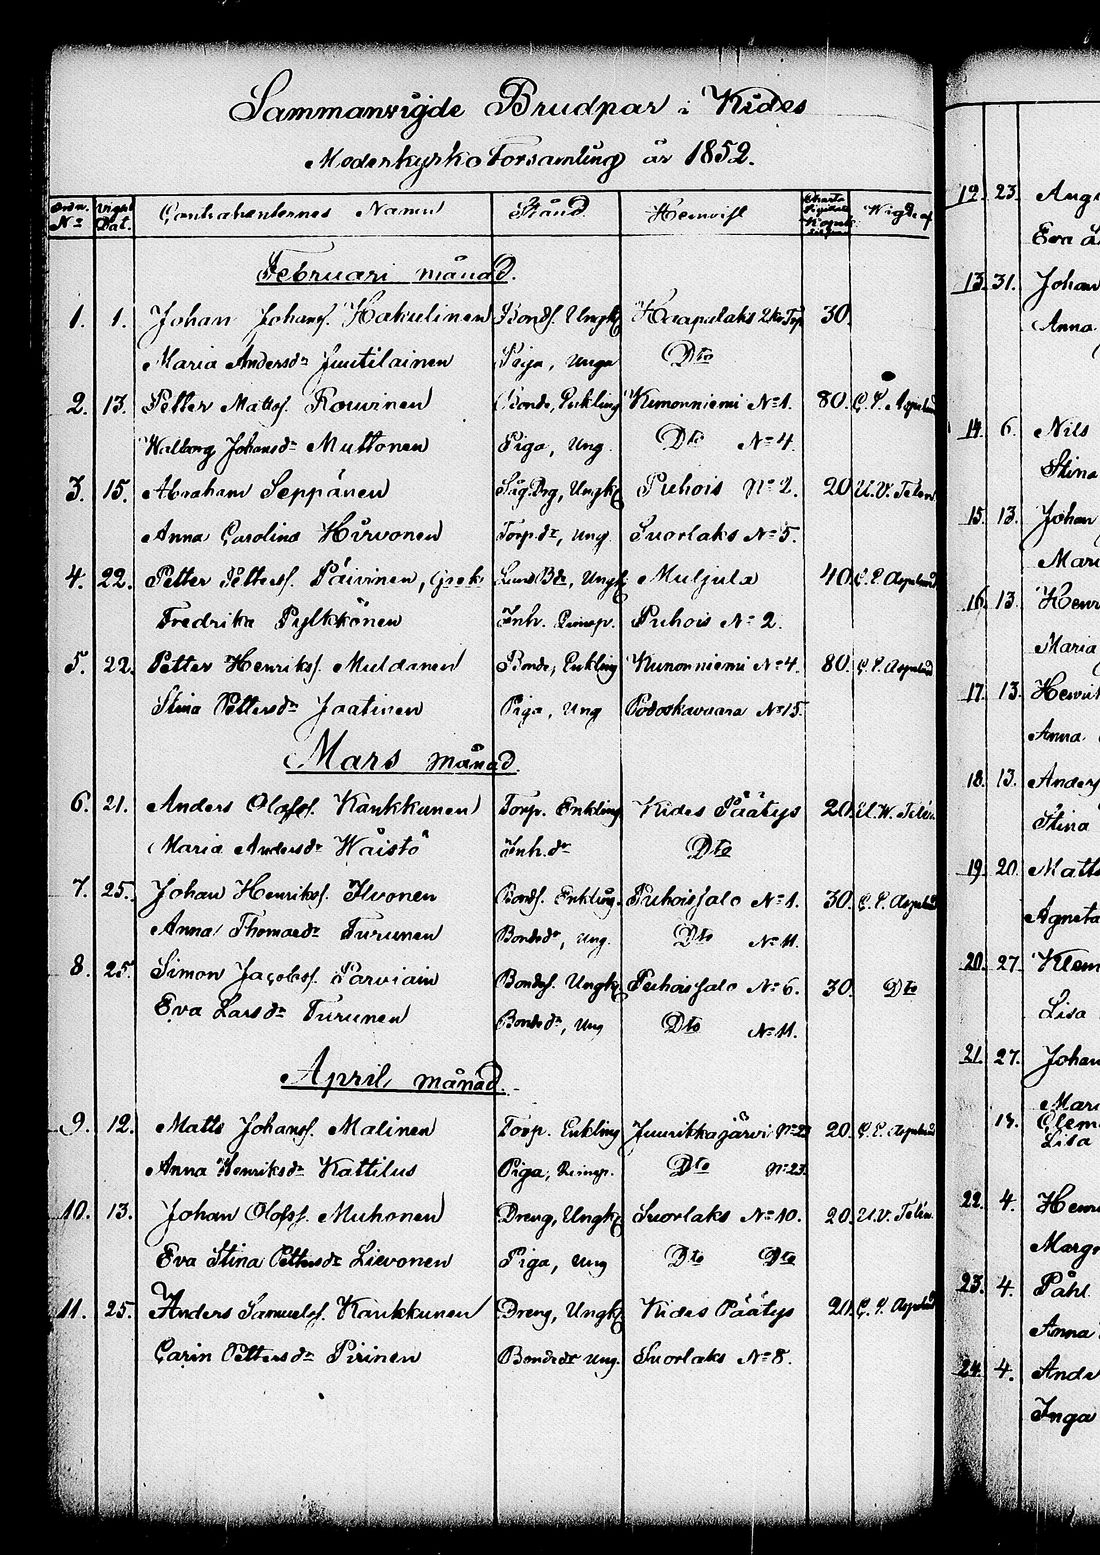 Sammanvigde Brudpar i Kides
Moderkyrko Församling år 1852.
Ordn. No Vigsel Dat. Contrahenternes Namn Stånd. Hemvist Charta Sigillata Vigde af
Februari månad.
1. 1. Johan Johansf. Hakulinen Bondf. Ungk Haapalaks 30.
Maria Andersdr Juutilainen Piga, Unga Dto
2. 13. Petter Mattsf. Rouvinen Bonde, Enkling Kunonniemi No 1. 80. C. E. Aspelund
Walborg Johansdr Muttonen Piga, Ung. Dto No 4.
3. 15. Abraham Seppänen Ungk Puhois No 2. 20 U.V. Telén
Anna Carolina Hirvonen Torp.dr, Ung Suorlaks No 5.
4. 22. Petter Pettersf. Päivinen, Grek. Ungk Muljula 40. C. E. Aspelund
Fredrika Pylkkönen Inh. Puhois No 2.
5. 22. Petter Henriksf. Muldanen Bonde, Enkling Kunonniemi No 4. 80. C. E. Aspelund
Stina Pettersdr Jaatinen Piga, Ung Potoskavaara No 15.
Mars månad.
6. 21. Anders Olofsf. Kaukkunen Torp. Enkling Kides Päätys 20. U.W. Telén
Maria Andersdr Wäistö Inh.dr Dto
7. 25. Johan Henriksf. Ilvonen Bondf. Enkling. Puhoissalo No 1. 30. C. E. Aspelund
Anna Thomaedr Turunen Bondedr, Ung. Dto No 11.
8. 25. Simon Jacobsf. Parviain Bondf. Ungk Puhoissalo No 6. 30. Dto
Eva Larsdr Turunen Bondedr, Ung Dto No 11.
April månad.
9. 12. Matts Johansf. Malinen Torp. Enkling Juurikkajärvi No 23 20. C. E. Aspelund
Anna Henriksdr Kattilus Piga, Dto No 23.
10. 13. Johan Olofsf. Muhonen Dreng, Ungk Suorlaks No 10. 20. U.V. Telén.
Eva Stina Pettersdr Lievonen Piga, Ung Dto Dto
11. 25. Anders Samuelsf. Kaukkunen Dreng, Ungk Kides Päätys 20. C. E. Aspelund
Carin Pettersdr Pirinen Bondedr Ung. Suorlaks No 8.
12. 23. Aug
Eva
13. 31. Johan
Anna
14. 6. Nils
Stina
15. 13. Johan
Mari
16. 13. Henr
Maria
17. 13. Henrik
Anna
18. 13. Anders
Stina
19. 20. Matts
Agneta
20. 27. Klem
Lisa
21. 27. Johan
Mari
Clem
Lisa
22. 4. Henr
Marg
23. 4. Påhl
Anna
24. 4. Ande
Inga